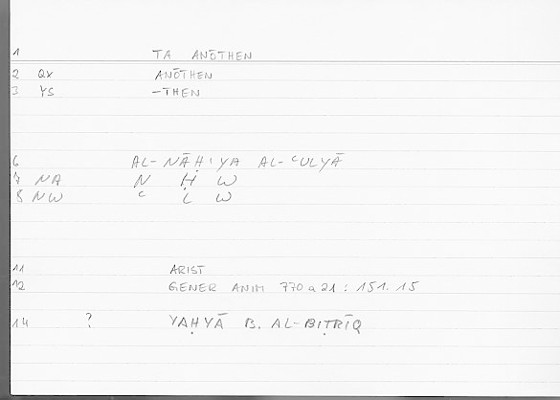 1 TA ANŌTHEN
2 QX ANŌTHEN
3 YS –THEN
6 AL-NĀḤIYA AL-ʿULYĀ
7 NA N Ḥ W
8 NW ʿ L W
11 ARIST
12 GENER ANIM 770 a 21 : 151.15
14 ? YAḤYĀ B. AL-BIṬRĪQ